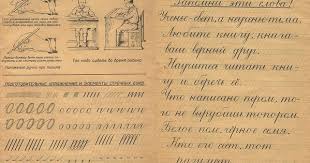 Так надо сидеть во время письма
Подготовительные упражнения и элементы строчных букв.
Запомни эти слова!
Ученье - свет, а неученье тьма.
Любите книгу, книга
ваш верный друг.
Научился читать книгу
и береги её.
Что написано пером, то-
го не вырубишь топором.
Белое поле, чёрное семя.
Кто его сеет, тот
разумеет.